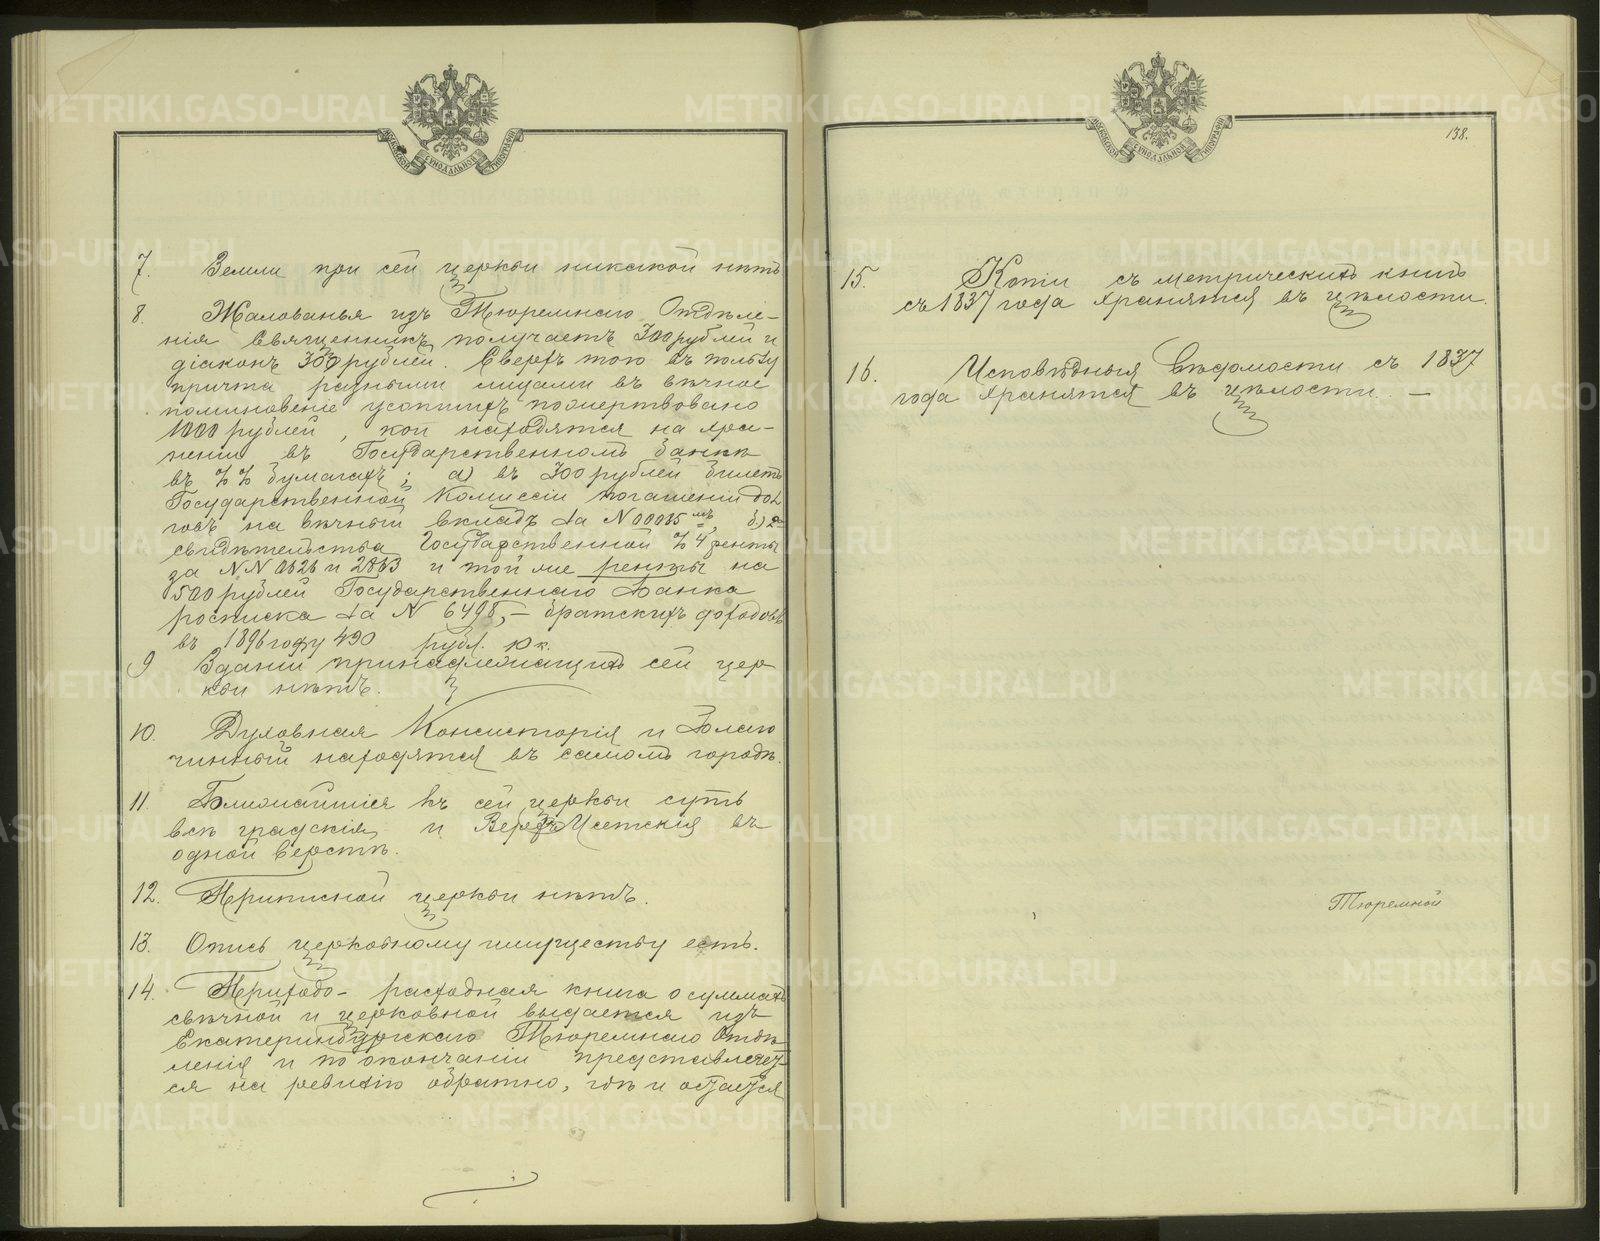 МОСКОВСКОЙ СУНОДАЛЬНОЙ ТИПОГРАФІИ
7. Земли при сей церкви никакой нѣтъ
8. Жалованья изъ Тюремнаго Отдѣле-
нія Священникъ получаетъ 300 рублей и
діаконъ 300 рублей. Сверхъ того въ пользу
причта разными лицами въ вѣчное
поминовеніе усопшихъ пожертвовано
1000 рублей, кои находятся на хра-
неніи въ Государственномъ банкѣ
въ %% бумагахъ; а) въ 300 рублей билетъ
Государственной Комиссіи погашенія дол
говъ на вѣчный вкладъ за N 00035, б) 2
свидѣтельства Государственной % 4 ренты
за NN 0626 и 2863 и той же ренты на
500 рублей Государственнаго Банка
росписка за N 6498, – братскихъ доходовъ
въ 1896 году 490 рубл. 10 к.
9 Зданій принадлежащихъ сей цер
кви нѣтъ.
10. Духовная Консисторія и Благо
чинный находятся въ самомъ городѣ.
11. Ближайшіся къ сей церкви суть
всѣ градскія и Верхъ Исетскія въ
одной верстѣ.
12. Приписной церкви нѣтъ.
13. Опись церковному имуществу есть.
14. Приходо- расходная книга о суммахъ
свѣчной и церковной выдается изъ
Екатеринбургскаго Тюремнаго Отдѣ
ленія и по окончаніи представляет-
ся на ревизію обратно, гдѣ и остается
МОСКОВСКОЙ СУНОДАЛЬНОЙ ТИПОГРАФІИ
138.
15. Копіи съ метрическихъ книгъ
съ 1837 года хранятся въ цѣлости.
16. Исповѣдныя вѣдомости съ 1837
года хранятся въ цѣлости. –
Тюремной
METRIKI.GASO-URAL.RU